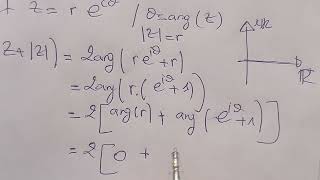 z = r e^{iθ} / θ = arg(z)
|z| = r
z + |z|) = 2arg(r e^{iθ} + r)
= 2arg(r.(e^{iθ} + 1))
= 2[arg(r) + arg(e^{iθ} + 1)]
= 2[0 +
iR
R